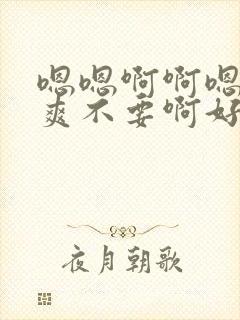 嗯嗯啊啊嗯
爽不要啊好
夜月朝歌